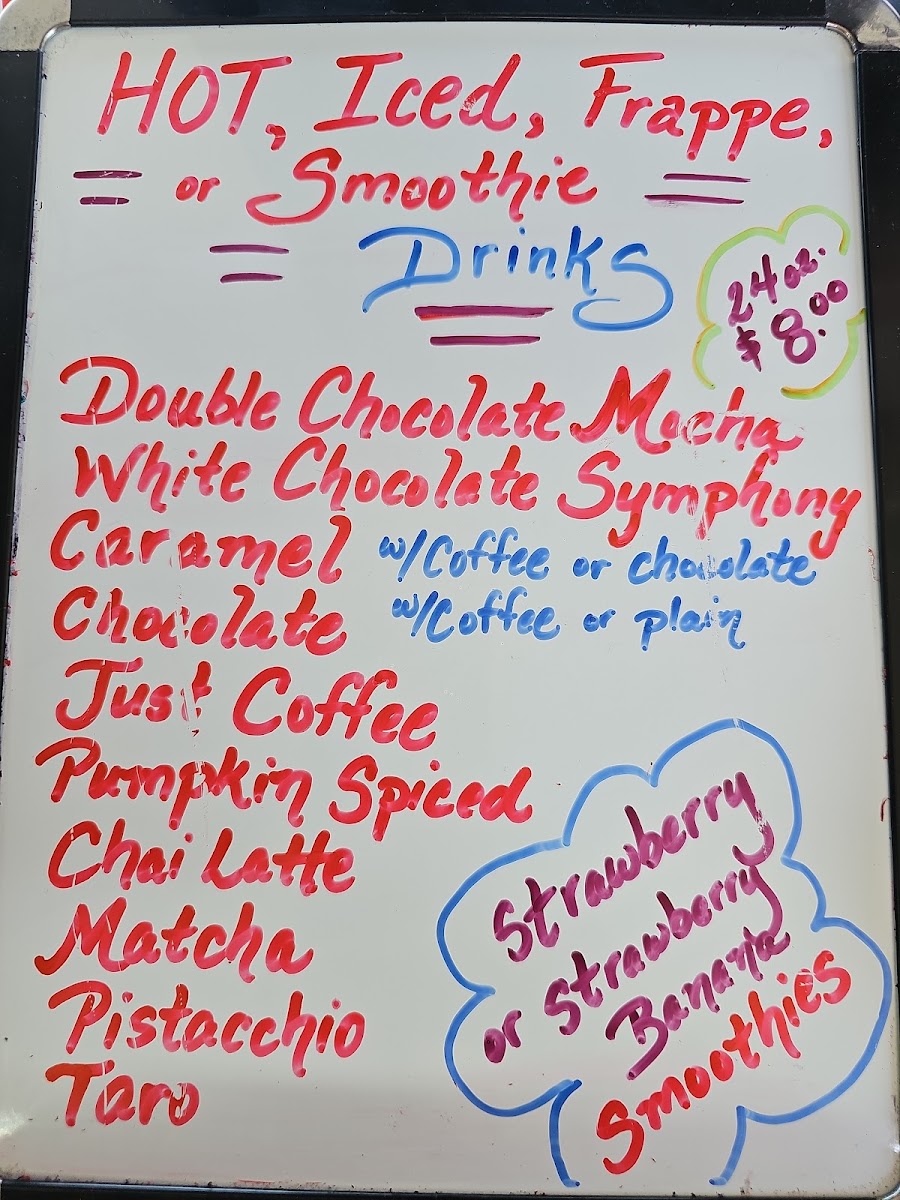 HOT, Iced, Frappe,
or Smoothie
Drinks
24 oz.
$8.00
Double Chocolate Mocha
White Chocolate Symphony
Caramel w/Coffee or chocolate
Chocolate w/Coffee or plain
Just Coffee
Pumpkin Spiced
Chai Latte
Matcha
Pistacchio
Taro
Strawberry
or Strawberry
Banana
Smoothies